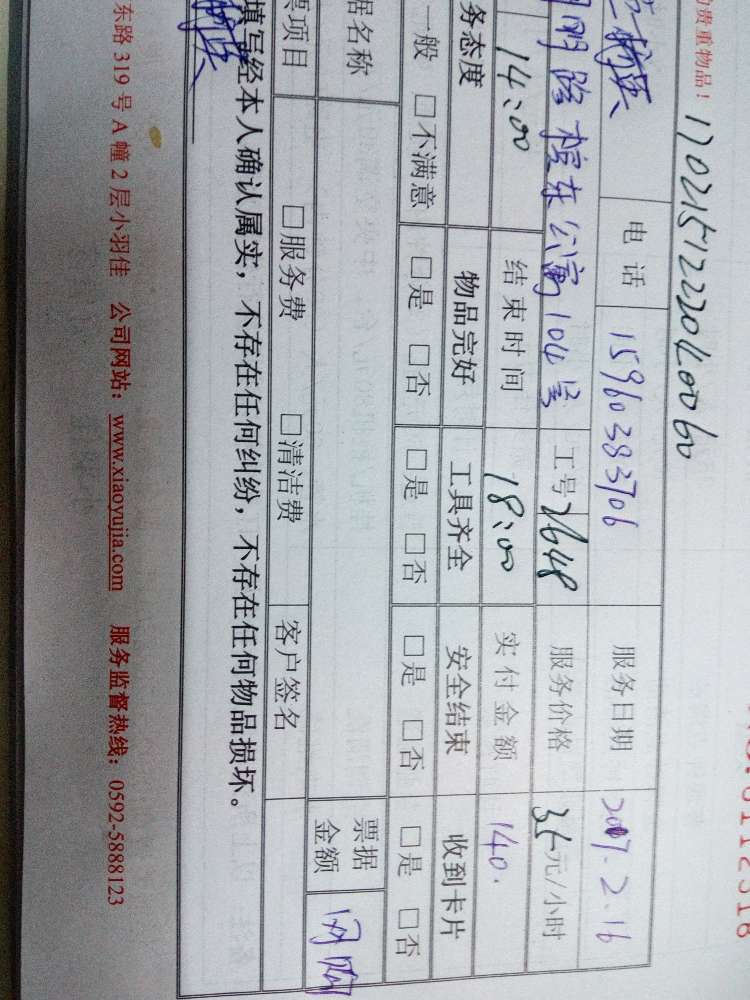 贵重物品！ 1702151222040060
电话 15960383706 服务日期 2017.2.16
槟东公寓104号 工号 2648 服务价格 35元/小时
14:00 结束时间 18:00 实付金额 140.
务态度 物品完好 工具齐全 安全结束 收到卡片
一般 □不满意 □是 □否 □是 □否 □是 □否 □是 □否
据名称 票据金额 网购
票项目 □服务费 □清洁费 客户签名
填写经本人确认属实，不存在任何纠纷，不存在任何物品损坏。
东路 319 号 A 幢 2 层小羽佳 公司网站：www.xiaoyujia.com 服务监督热线：0592-5888123